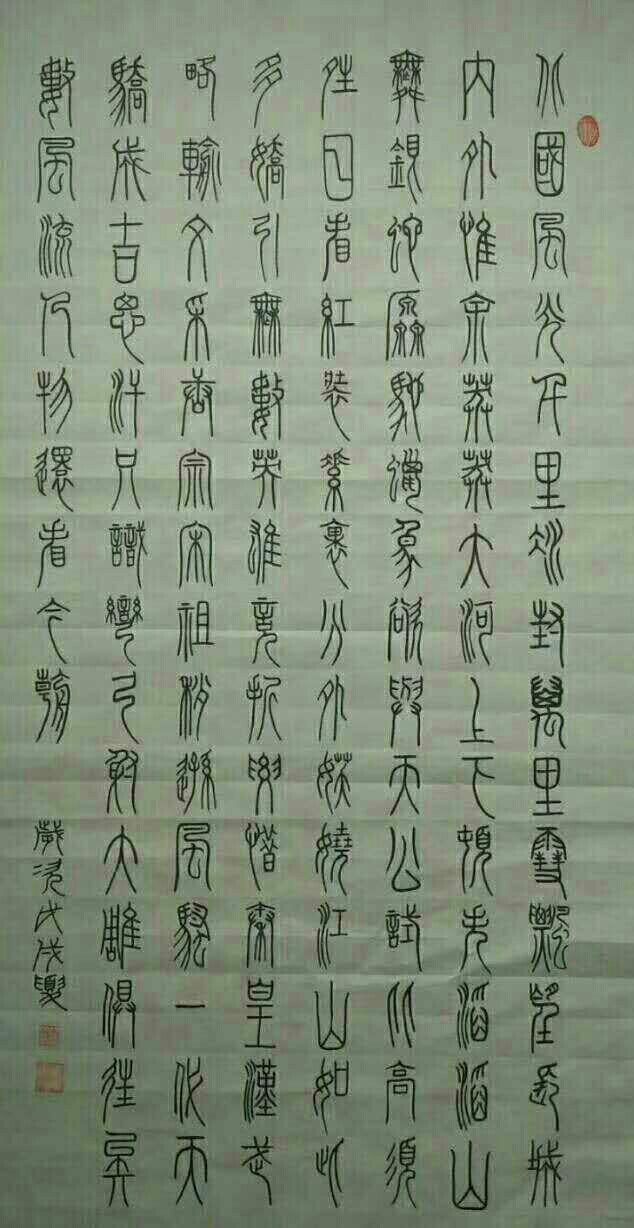 北國風光千里冰封萬里雪飄望長城
內外惟余莽莽大河上下頓失滔滔山
舞銀蛇原馳蠟象欲與天公試比高須
晴日看紅裝素裹分外妖嬈江山如此
多嬌引無數英雄競折腰惜秦皇漢武
略輸文采唐宗宋祖稍遜風騷一代天
驕成吉思汗只識彎弓射大雕俱往矣
數風流人物還看今朝
歲次戊戌夏